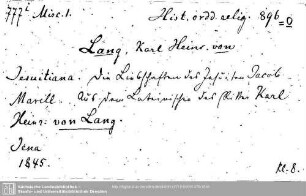 777ᵗ Misc. 1.
Hist. ordd. relig. 896=0
Lang, Karl Heinr. von
Jesuitiana. Die Liebschaften des Jesuiten Jacob
Marell. Aus dem Lateinischen des Ritter Karl
Heinr: von Lang.
Jena
1845.
kl. 8.
Sächsische Landesbibliothek -
Staats- und Universitätsbibliothek Dresden